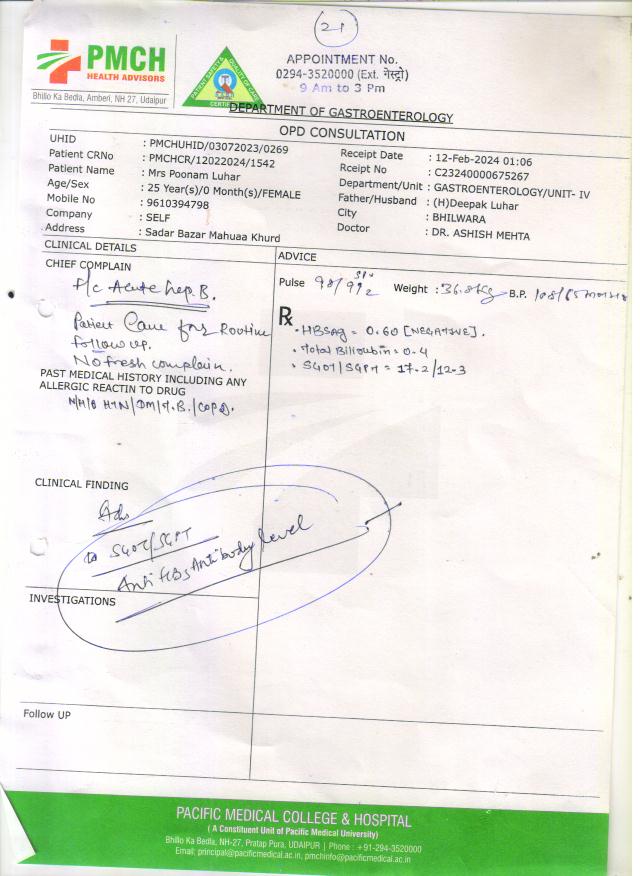 21
PMCH
HEALTH ADVISORS
Bhillo Ka Bedla, Amberi, NH 27, Udaipur
PATIENT SAFETY & QUALITY OF CARE
CERTIFIED
APPOINTMENT No.
0294-3520000 (Ext. गेस्ट्रो)
9 Am to 3 Pm
DEPARTMENT OF GASTROENTEROLOGY
OPD CONSULTATION
UHID : PMCHUHID/03072023/0269
Patient CRNo : PMCHCR/12022024/1542
Patient Name : Mrs Poonam Luhar
Age/Sex : 25 Year(s)/0 Month(s)/FEMALE
Mobile No : 9610394798
Company : SELF
Address : Sadar Bazar Mahuaa Khurd
Receipt Date : 12-Feb-2024 01:06
Rceipt No : C23240000675267
Department/Unit : GASTROENTEROLOGY/UNIT- IV
Father/Husband : (H)Deepak Luhar
City : BHILWARA
Doctor : DR. ASHISH MEHTA
CLINICAL DETAILS
CHIEF COMPLAIN
f/c Acute hep. B.
Patient Came for Routine
follow up.
No fresh complain.
PAST MEDICAL HISTORY INCLUDING ANY
ALLERGIC REACTIN TO DRUG
N/H/O HTN/DM/T.B./COPD.
CLINICAL FINDING
Adv
SGOT/SGPT
Anti HBs Antibody level
INVESTIGATIONS
Follow UP
ADVICE
Pulse 98/99 Weight : 36.8 Kg B.P. 108/65
Rx
• HBSAg = 0.60 [NEGATIVE].
• Total Billoubin = 0.4
• SGOT/SGPT = 17.2/12.3
PACIFIC MEDICAL COLLEGE & HOSPITAL
( A Constituent Unit of Pacific Medical University)
Bhillo Ka Bedla, NH-27, Pratap Pura, UDAIPUR | Phone : +91-294-3520000
Email: principal@pacificmedical.ac.in, pmchinfo@pacificmedical.ac.in